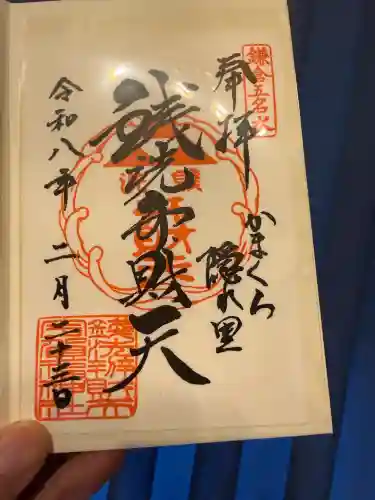 鎌倉五名水
奉拝
かまくら
隠れ里
銭洗弁財天
令和八年 二月 二十三日